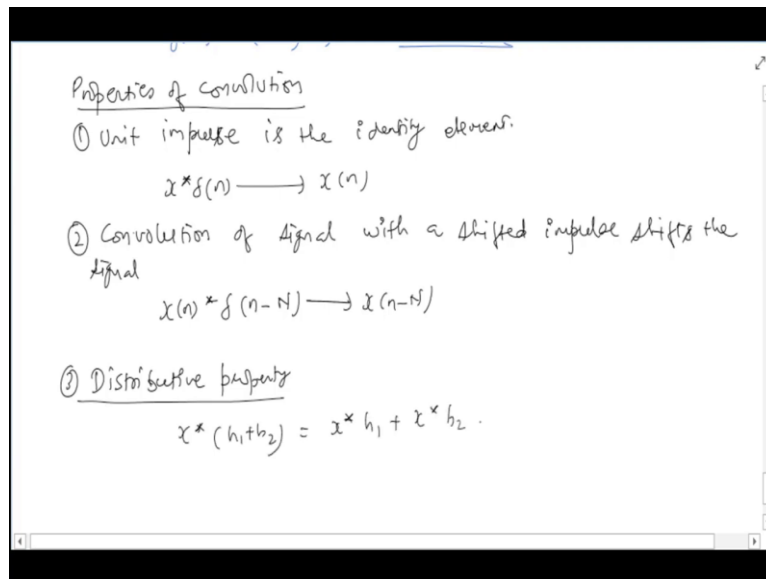 Properties of convolution
① Unit impulse is the identity element.
x*δ(n) ⟶ x(n)
② Convolution of signal with a shifted impulse shifts the
signal
x(n)*δ(n-N) ⟶ x(n-N)
③ Distributive property
x*(h₁+h₂) = x*h₁ + x*h₂.